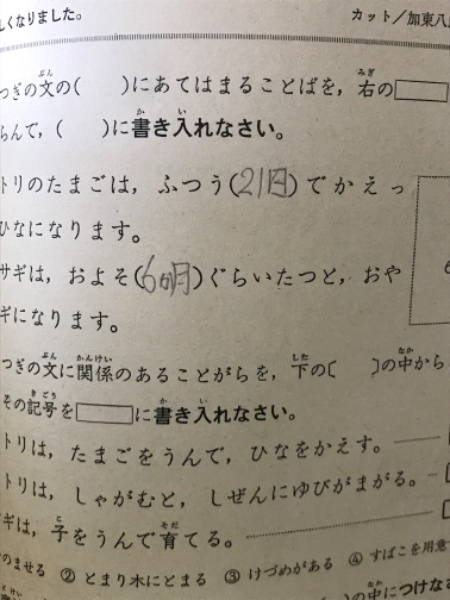 しくなりました。 カット／加東八
つぎの文の( )にあてはまることばを，右の
らんで，( )に書き入れなさい。
トリのたまごは，ふつう(21日)でかえっ
ひなになります。
サギは，およそ(6か月)ぐらいたつと，おや
ギになります。
つぎの文に関係のあることがらを，下の〔 〕の中から
その記号を に書き入れなさい。
トリは，たまごをうんで，ひなをかえす。
トリは，しゃがむと，しぜんにゆびがまがる。
ギは，子をうんで育てる。
のませる ② とまり木にとまる ③ けづめがある ④ すばこを用意
の中につけなさ